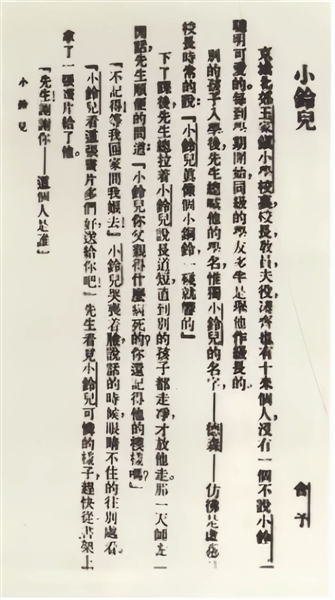 小鈴兒
舍予
京城北郊王家鎮小學校裏,校長,教員,夫役,湊齊也有十來個人,沒有一個不說小鈴
聰明可愛的。每到學期開始,同級的學友多半是舉他作級長的。
別的孩子入學後,先生總喊他的學名,惟獨小鈴兒的名字——德森——彷彿是虛設
校長時常的說:「小鈴兒真像個小銅鈴,一碰就響的」
下了課後,先生總拉着小鈴兒說長道短,直到別的孩子都走淨,才放他走。那一天師生
閒話,先生順便的問道:「小鈴兒你父親得什麼病死的?你還記得他的模樣嗎?」
「不記得!等我回家問我娘去!」小鈴兒哭喪着臉,說話的時候,眼睛不住的往別處看。
「小鈴兒看這張畫片多們好,送給你吧!」先生看見小鈴兒可憐的樣子,趕快從書架上
拿了一張畫片給了他。
「先生!謝謝你——這個人是誰?」
小鈴兒